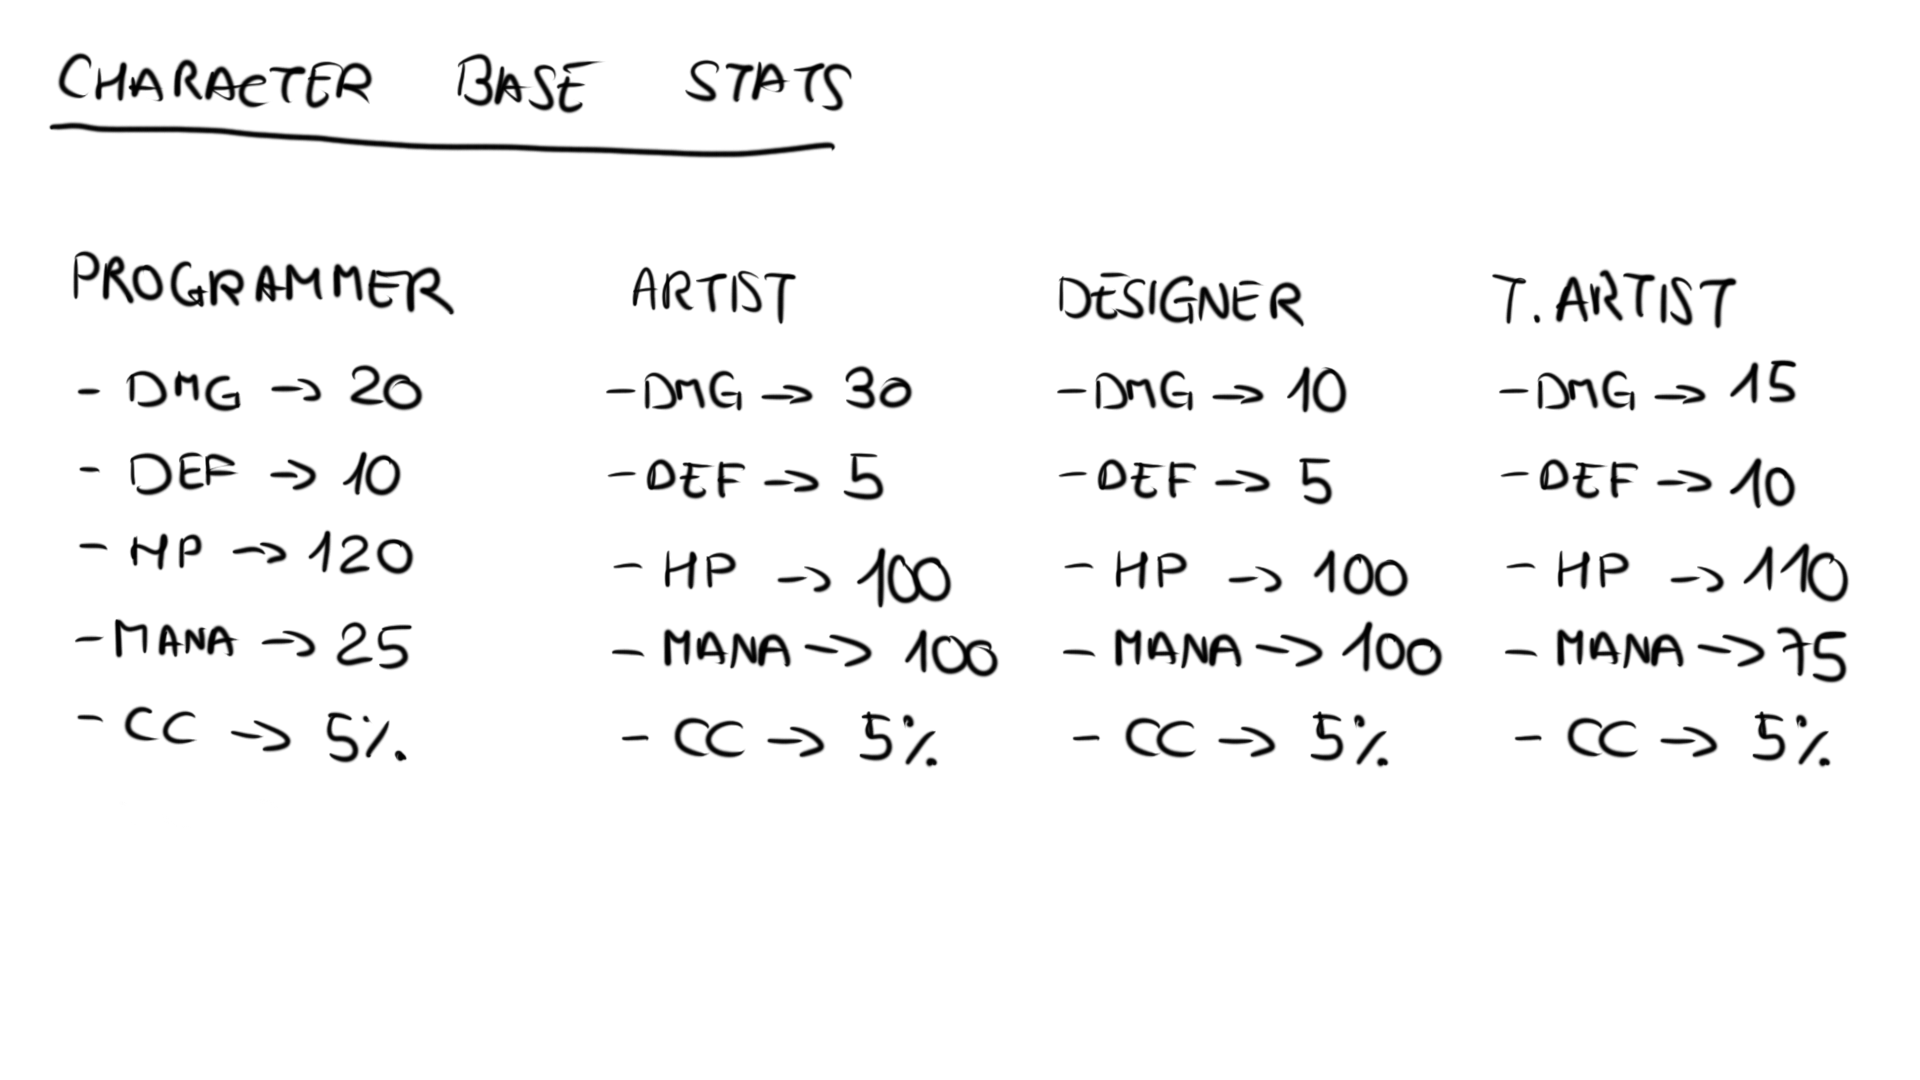 CHARACTER BASE STATS
PROGRAMMER
- DMG → 20
- DEF → 10
- HP → 120
- MANA → 25
- CC → 5%
ARTIST
- DMG → 30
- DEF → 5
- HP → 100
- MANA → 100
- CC → 5%
DESIGNER
- DMG → 10
- DEF → 5
- HP → 100
- MANA → 100
- CC → 5%
T. ARTIST
- DMG → 15
- DEF → 10
- HP → 110
- MANA → 75
- CC → 5%